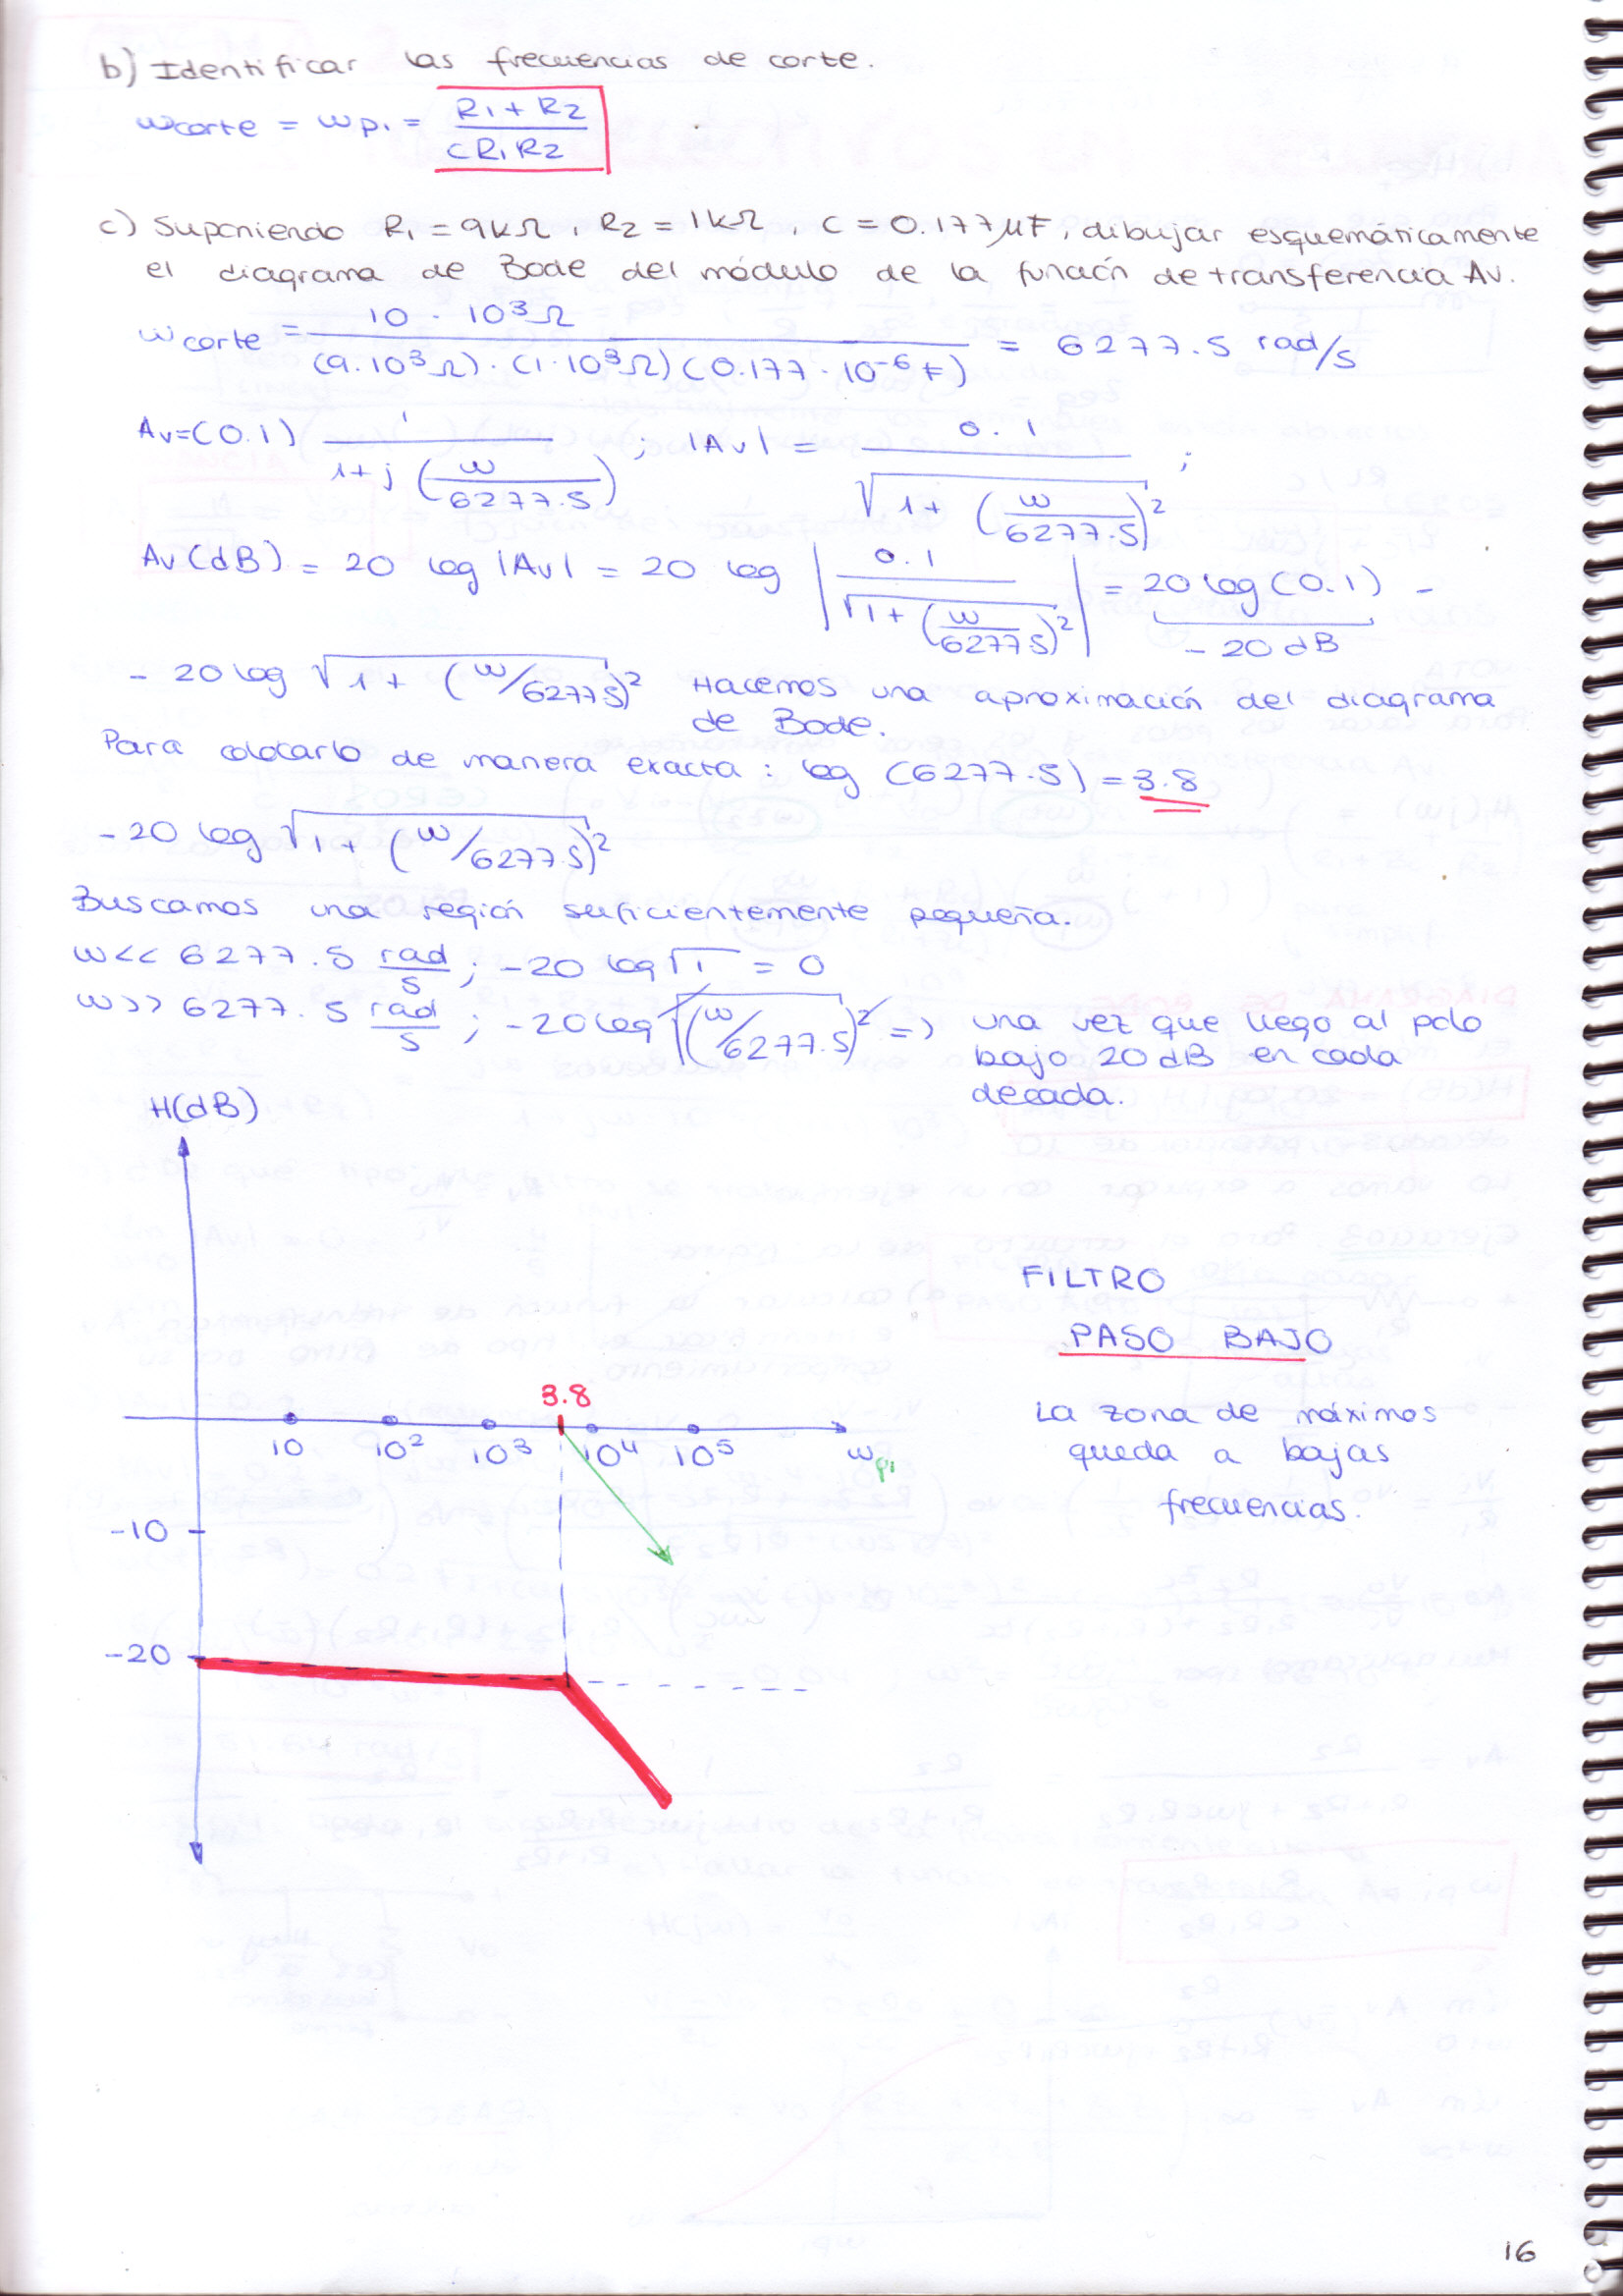 b) Identificar las frecuencias de corte.
ωcorte = ωp₁ = (R₁ + R₂) / (C R₁ R₂)
c) Suponiendo R₁ = 9kΩ, R₂ = 1kΩ, C = 0.177 μF, dibujar esquemáticamente
el diagrama de Bode del módulo de la función de transferencia Av.
ωcorte = (10 · 10³Ω) / ((9·10³Ω)·(1·10³Ω)(0.177·10⁻⁶F)) = 6277.5 rad/s
Av=(0.1) 1 / (1+j(ω/6277.5)) ; |Av| = 0.1 / √(1+(ω/6277.5)²) ;
Av(dB) = 20 log |Av| = 20 log |0.1 / √(1+(ω/6277.5)²)| = 20 log(0.1) -
-20 dB
- 20 log √(1+(ω/6277.5)²) Hacemos una aproximación del diagrama
de Bode.
Para colocarlo de manera exacta: log (6277.5) = 3.8
-20 log √(1+(ω/6277.5)²)
Buscamos una región suficientemente pequeña.
ω<< 6277.5 rad/s ; -20 log √1 = 0
ω>> 6277.5 rad/s ; -20 log √((ω/6277.5)²) => una vez que llego al polo
bajo 20 dB en cada
decada.
H(dB)
FILTRO
PASO BAJO
La zona de máximos
queda a bajas
frecuencias.
3.8
10 10² 10³ 10⁴ 10⁵ ωp₁
-10
-20
16